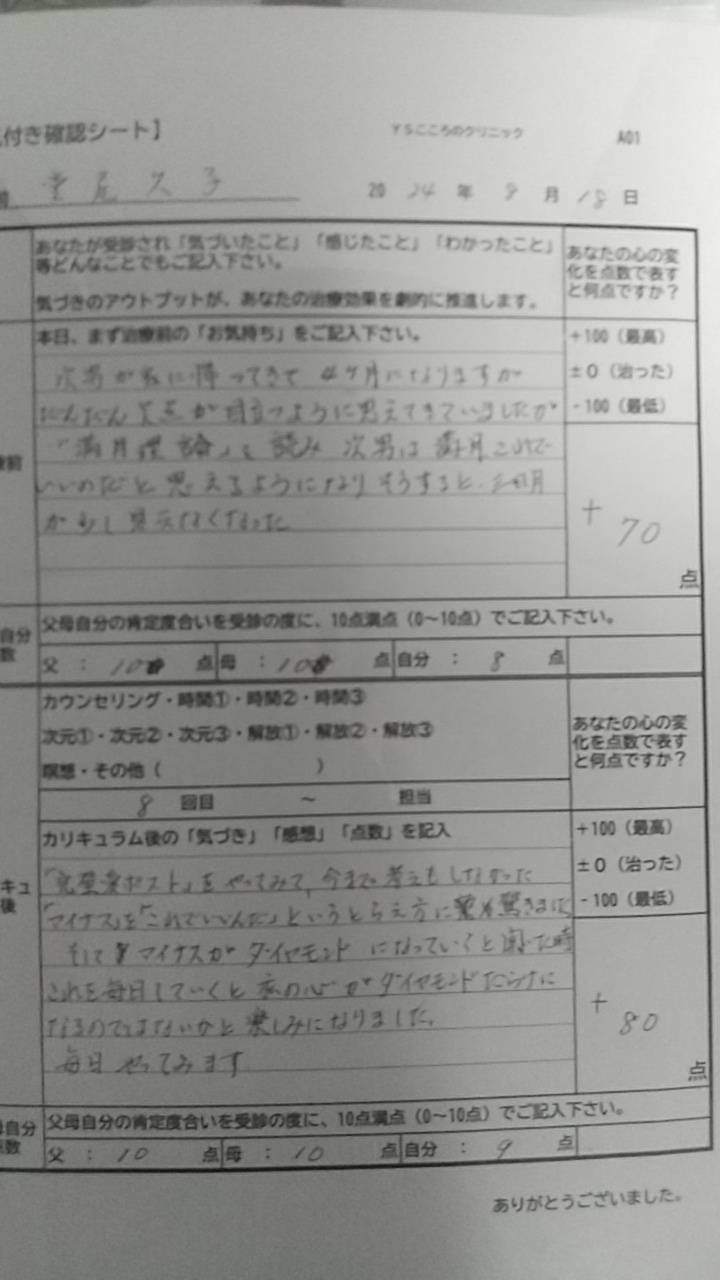 付き確認シート】 YSこころのクリニック A01
久子 2024年9月18日
あなたが受診され「気づいたこと」「感じたこと」「わかったこと」
等どんなことでもご記入下さい。
気づきのアウトプットが、あなたの治療効果を劇的に推進します。
あなたの心の変
化を点数で表す
と何点ですか?
本日、まず治療前の「お気持ち」をご記入下さい。
+100(最高)
±0(治った)
-100(最低)
次男が家に帰ってきて4ヶ月になりますが
だんだん欠点が目立つように思えてきていましたが
「満月理論」を読み 次男は満月これで
いいのだと思えるようになりそうすると、三日月
が少し見えなくなった
前
+70
点
自分
数
父母自分の肯定度合いを受診の度に、10点満点(0~10点)でご記入下さい。
父:10点 母:10点 自分:8点
カウンセリング・時間①・時間②・時間③
次元①・次元②・次元③・解放①・解放②・解放③
瞑想・その他( )
あなたの心の変
化を点数で表す
と何点ですか?
8回目 ~ 担当
カリキュラム後の「気づき」「感想」「点数」を記入
+100(最高)
±0(治った)
-100(最低)
キュ
後
ポスト」をやってみて、今まで考えもしなかった
「マイナス」を「これでいいんだ」というとらえ方に驚きました
そしてマイナスがダイヤモンドになっていくと聞いた時
これを毎日していくと私の心がダイヤモンドだらけに
なるのではないかと楽しみになりました。
毎日やってみます
+80
点
自分
点数
父母自分の肯定度合いを受診の度に、10点満点(0~10点)でご記入下さい。
父:10点 母:10点 自分:9点
ありがとうございました。